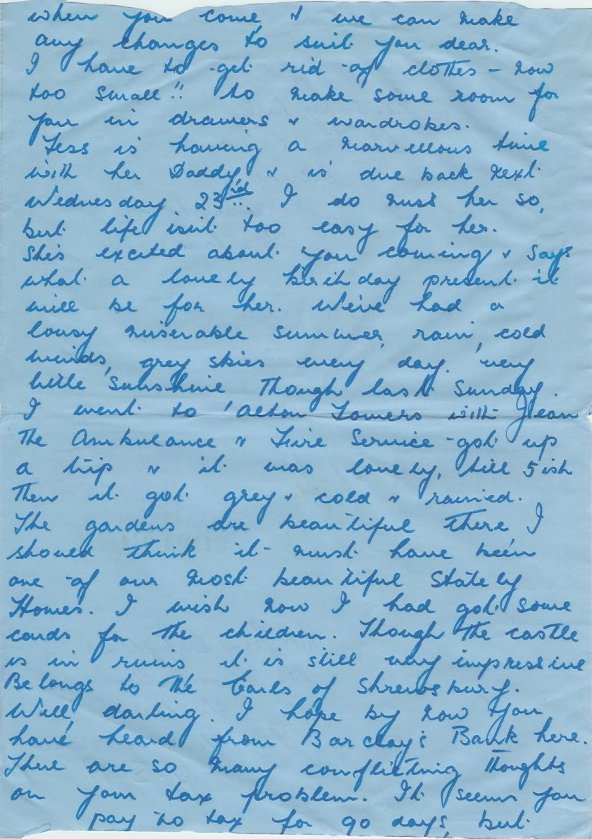 when you come & we can make
any changes to suit you dear.
I have to get rid of clothes - now
too small!! to make some room for
you in drawers & wardrobes.
Tess is having a marvellous time
with her Daddy & is due back next
Wednesday 23rd. I do miss her so,
but life isn't too easy for her.
She's excited about you coming & says
what a lovely birthday present it
will be for her. We've had a
lousy miserable summer, rain, cold
winds, grey skies every day. very
little sunshine though last Sunday.
I went to 'Alton Towers with Jean
The Ambulance & Fire Service - got up
a trip & it was lovely, till 5ish
Then it got grey & cold & rained.
The gardens are beautiful there I
should think it must have been
one of our most beautiful Stately
Homes. I wish now I had got some
cards for the children. Though the castle
is in ruins it is still very impressive
Belongs to the Earls of Shrewsbury.
Well, darling. I hope by now you
have heard from Barclay's Bank here.
There are so many conflicting thoughts
on your tax problem. It seems you
pay no tax for 90 days, but